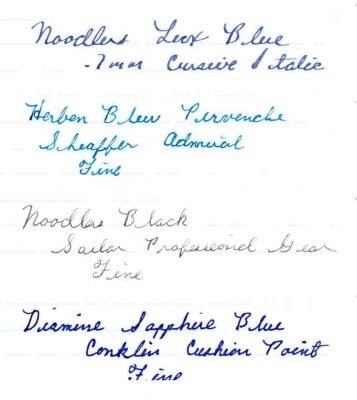 Noodlers Lux Blue
.7mm Cursive Italic
Herben Bleu Pervenche
Sheaffer Admiral
Fine
Noodlers Black
Sailor Professional Gear
Fine
Diamine Sapphire Blue
Conklin Cushion Point
Fine